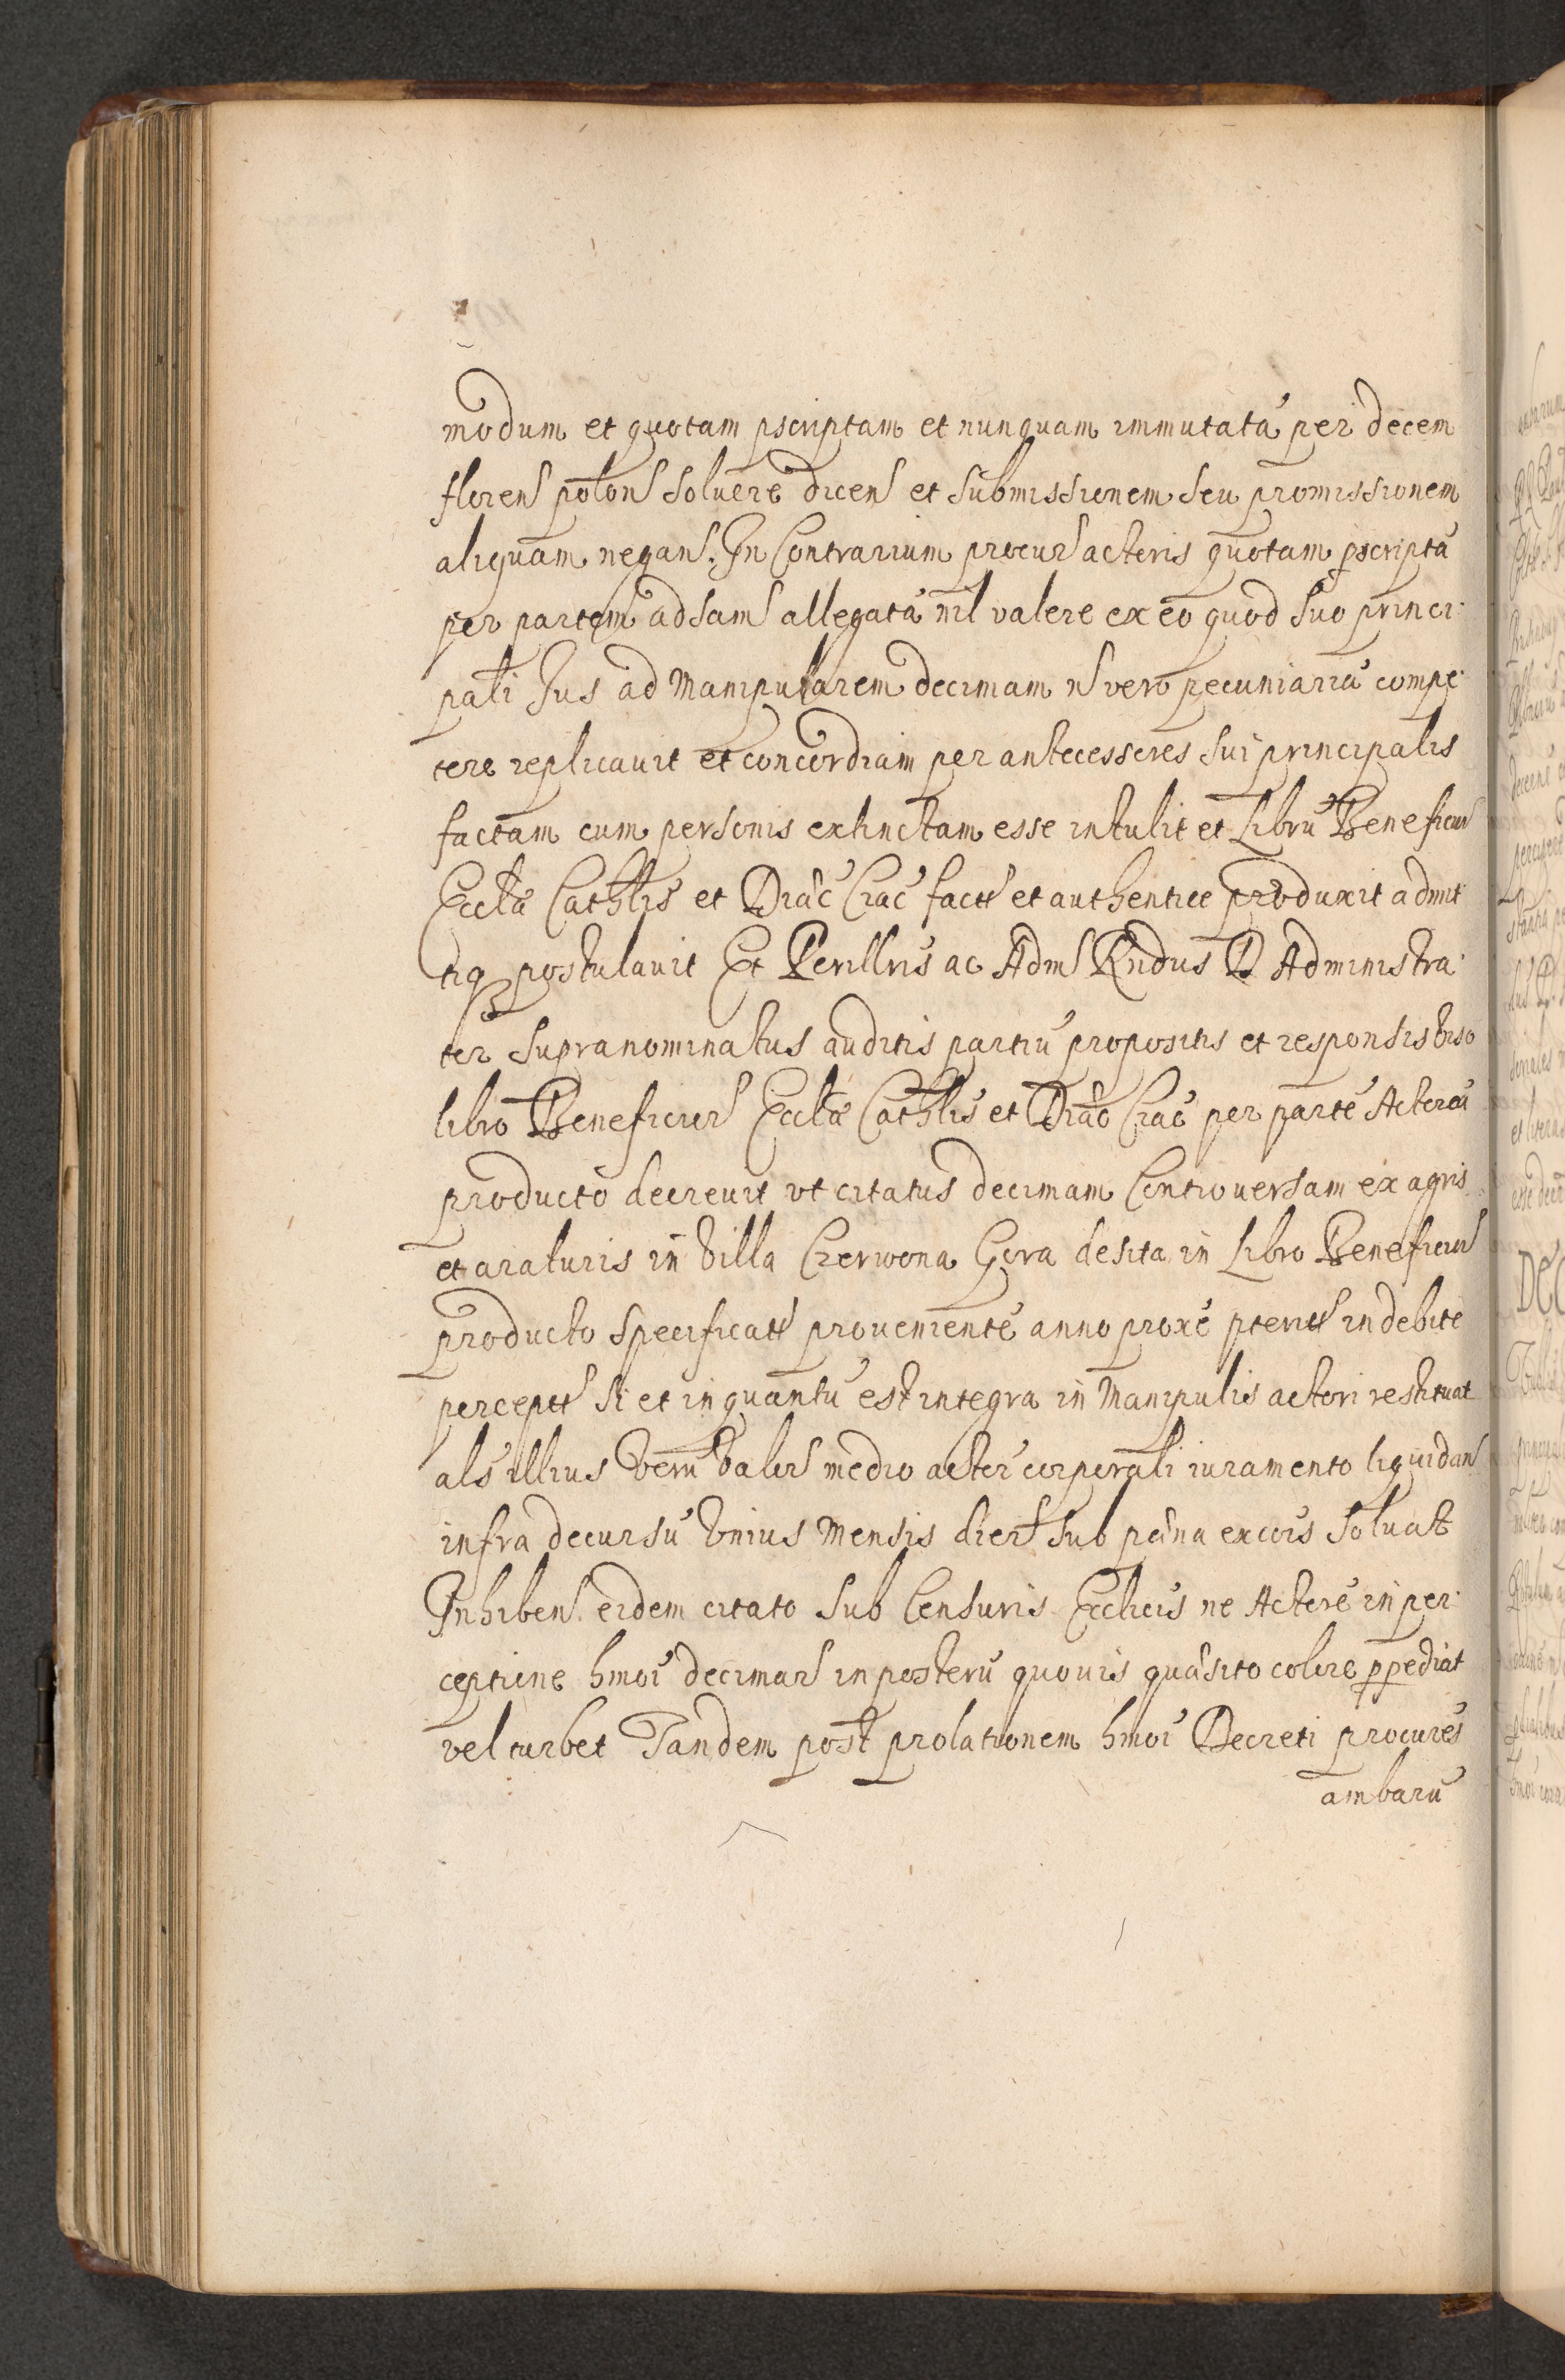 modum et quotam pscriptam et nunquam immutatā per decem
floren polon solvere dicen et submissionem seu promissionem
aliquam negans. In Contrarium procur actoris quotam pscriptā
per partem adsam allegatā nil valere ex eo quod suo princi:
pali Jus ad Manipularem decimam n vero pecuniariā compe:
tere replicavit et concordiam per antecessores sui principalis
factam cum personis extinctam esse intulit et Librū Beneficior
Eccłæ Cathłis et Diæc Crac facti et authentice produxit admit
tiq postulavit Et Perillris ac Adm Rndus D Administra:
tor supranominatus auditis partiū propositis et responsis viso
libro Beneficior Eccłæ Cathłis et Diæc Crac per partē Actoreā
producto decrevit ut citatus decimam Controversam ex agris
et araturis in Villa Czerwona Gora desita in Libro Beneficior
producto specificati provenientē anno proxe pteriti indebite
percepti si et in quantū est integra in Manipulis actori restituat
als illius verū valor medio actor corporali iuramento liquidan
infra decursū Unius Mensis dier sub pæna excois solvat
Inhiben eidem citato sub Censuris Ecclicis ne Actorē in per:
ceptione hmoi decimar in posterū quovis quæsito colore ppediat
vel turbet Tandem post prolationem hmoi Decreti procures
ambarū